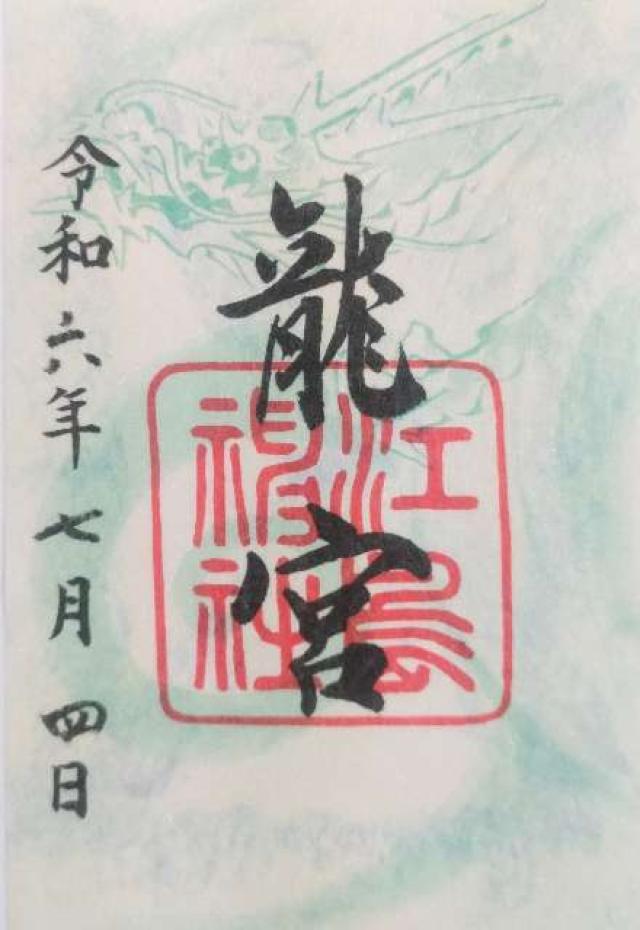 龍宮
江島
神社
令和六年七月四日